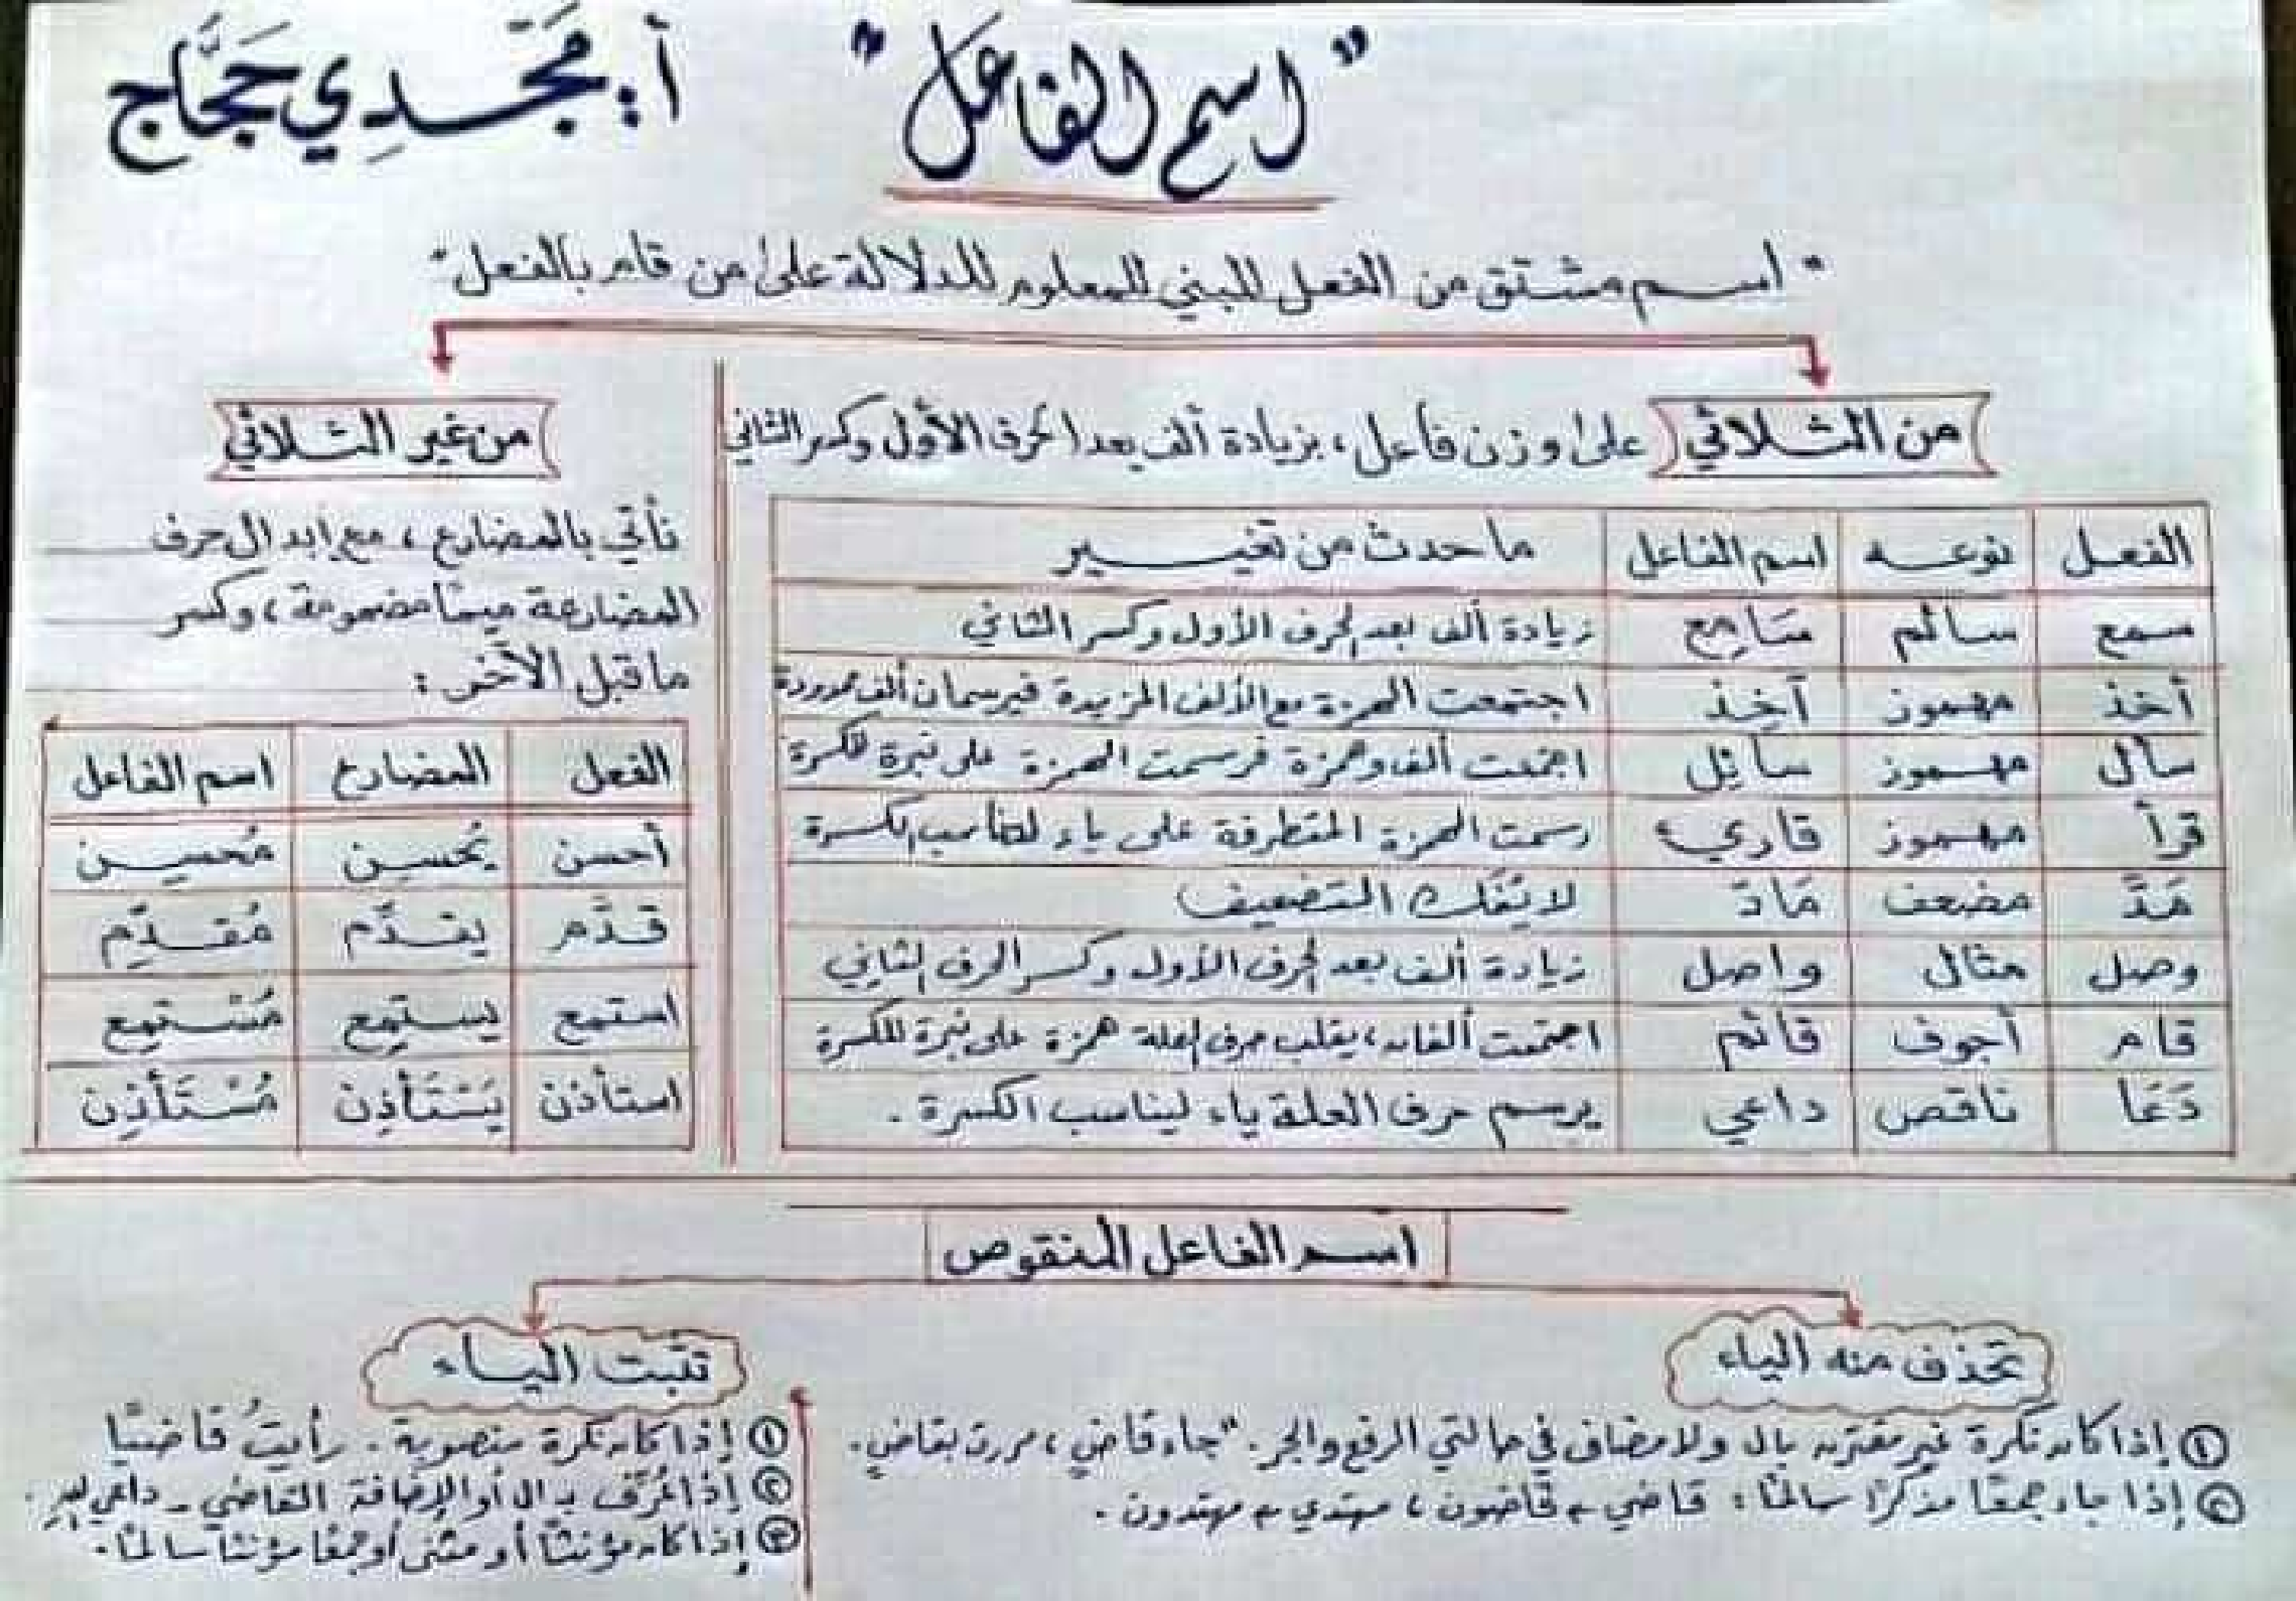 "اسم الفاعل"
أ. مَجْدِي حَجَّاج
" اسم مشتق من الفعل المبني للمعلوم للدلالة على من قام بالفعل "
من الثلاثي على وزن فاعل، بزيادة ألف بعد الحرف الأول وكسر الثاني
الفعل نوعه اسم الفاعل ما حدث من تغيير
سمع سالم سَامِع زيادة ألف بعد الحرف الأول وكسر الثاني
أخذ مهموز آخِذ اجتمعت الهمزة مع الألف المزيدة فيرسمان ألف ممدودة
سأل مهموز سائِل اجتمعت ألف وهمزة فرسمت الهمزة على نبرة للكسرة
قرأ مهموز قارِيء رسمت الهمزة المتطرفة على ياء لتناسب الكسرة
مَدَّ مضعف مَادّ لا يُفَك التضعيف
وصل مثال واصل زيادة ألف بعد الحرف الأول وكسر الحرف الثاني
قام أجوف قائم اجتمعت ألفان، يقلب حرف العلة همزة على نبرة للكسرة
دَعَا ناقص داعي يرسم حرف العلة ياء ليناسب الكسرة .
من غير الثلاثي
نأتي بالمضارع، مع إبدال حرف
المضارعة ميمًا مضمومة، وكسر
ما قبل الآخر :
الفعل المضارع اسم الفاعل
أحسن يُحسِن مُحسِن
قدَّم يقدِّم مُقدِّم
استمع يستمِع مُسْتمِع
استأذن يَسْتَأذِن مُسْتَأذِن
اسم الفاعل المنقوص
تحذف منه الياء
١ إذا كان نكرة غير مقترن بال ولا مضاف في حالتي الرفع والجر. "جاء قاضٍ، مررت بقاضٍ.
٢ إذا جاء جمعًا مذكرًا سالمًا : قاضي ← قاضون، مهتدي ← مهتدون .
تثبت الياء
١ إذا كان نكرة منصوبة . رأيتُ قاضيًا
٢ إذا عُرِّف بـ ال أو الإضافة القاضي - داعي
٣ إذا كان مؤنثًا أو مثنى أو جمعًا مؤنثًا سالمًا .